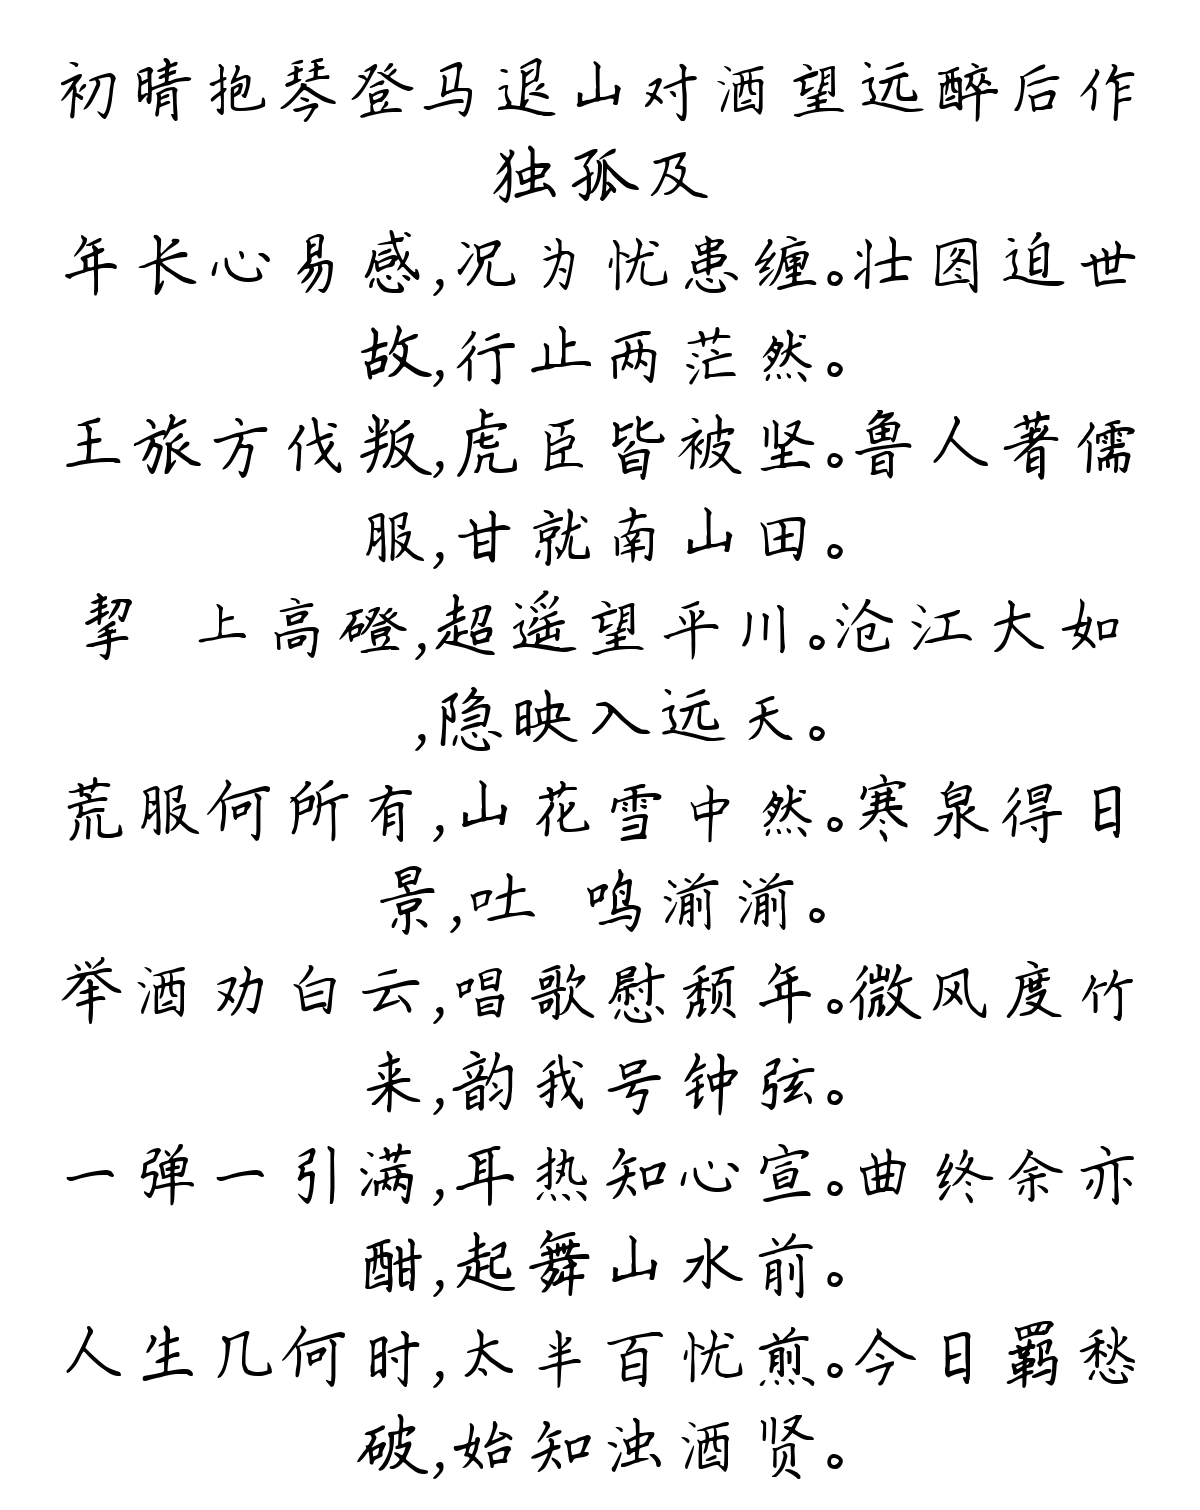 初晴抱琴登马退山对酒望远醉后作
独孤及
年长心易感,况为忧患缠。壮图迫世
故,行止两茫然。
王旅方伐叛,虎臣皆被坚。鲁人著儒
服,甘就南山田。
挈 上高磴,超遥望平川。沧江大如
,隐映入远天。
荒服何所有,山花雪中然。寒泉得日
景,吐 鸣湔湔。
举酒劝白云,唱歌慰颓年。微风度竹
来,韵我号钟弦。
一弹一引满,耳热知心宣。曲终余亦
酣,起舞山水前。
人生几何时,太半百忧煎。今日羁愁
破,始知浊酒贤。